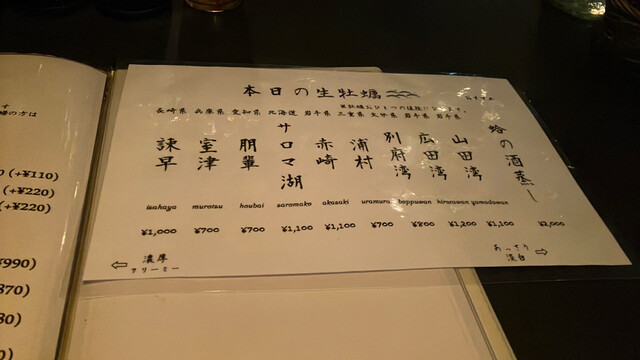 本日の生牡蠣
長崎県 兵庫県 愛知県 北海道 岩手県 三重県 大分県 岩手県 岩手県
諫早
室津
朋輩
サロマ湖
赤崎
浦村
別府湾
広田湾
山田湾
蛤の酒蒸し
isahaya murotsu houbai saromako akasaki uramura beppuwan hirotawan yamadawan
¥1,000 ¥700 ¥700 ¥1,100 ¥1,100 ¥700 ¥800 ¥1,200 ¥1,100 ¥2,000
⇦ 濃厚
クリーミー
あっさり ⇨
淡白
す
の方は
(+¥110)
(+¥220)
(+¥220)
¥990)
870)
80)